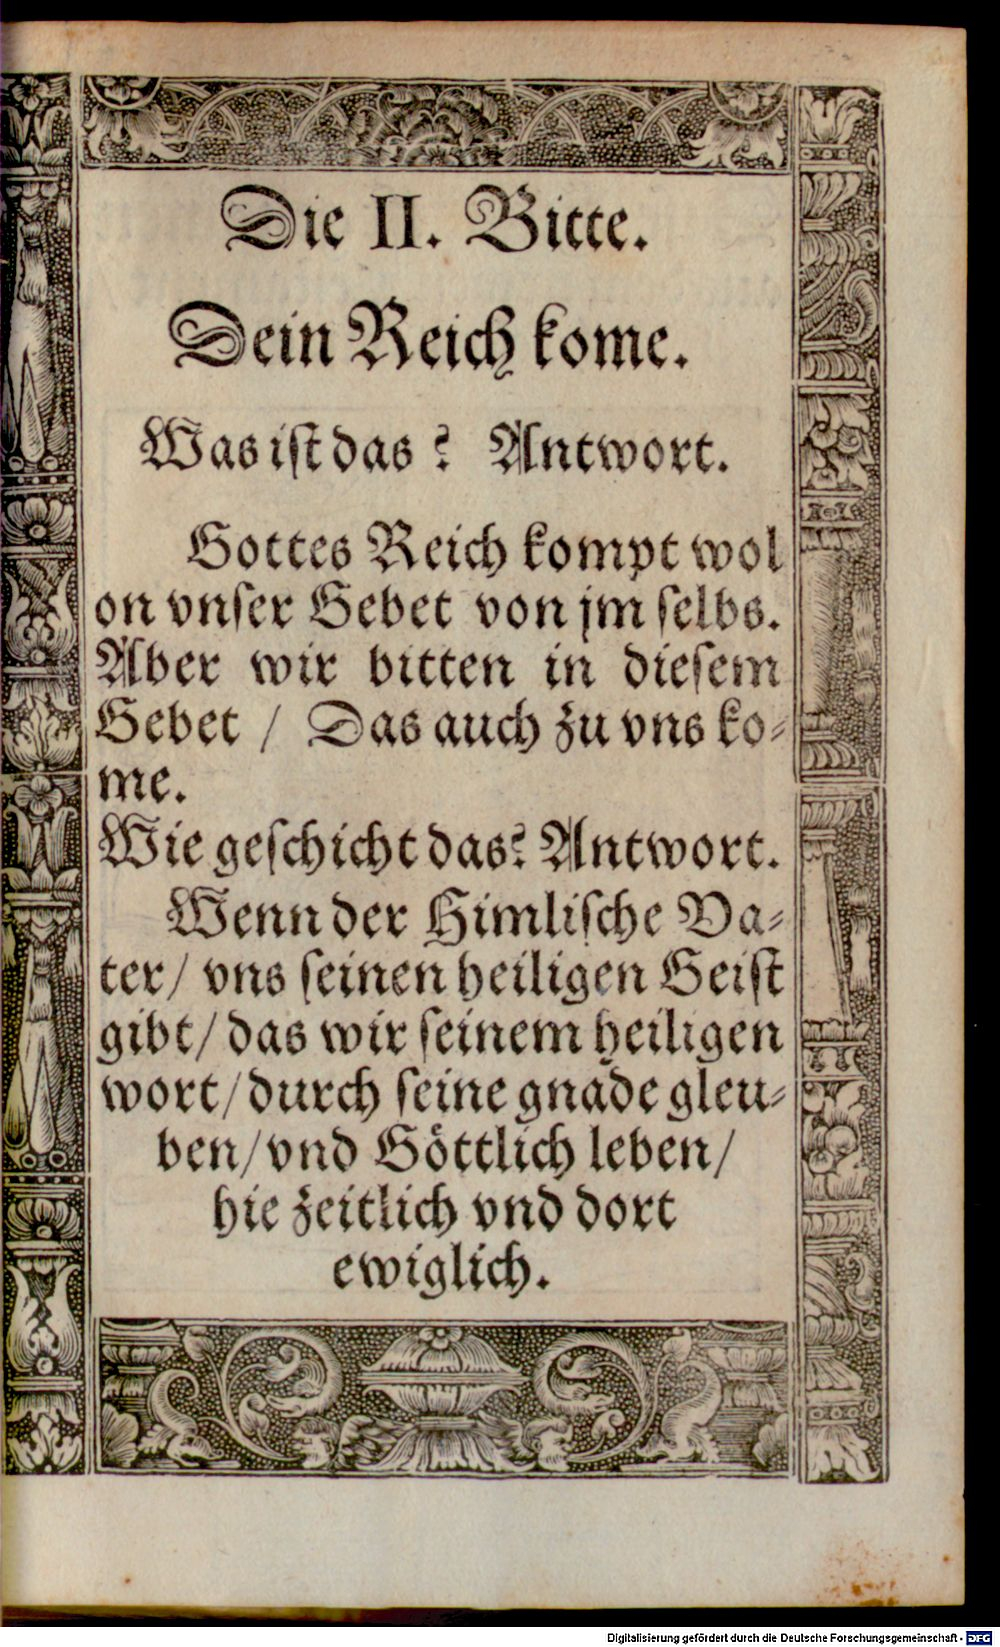 Die II. Bitte.
Dein Reich kome.
Was ist das? Antwort.
Gottes Reich kompt wol
on vnser Gebet von jm selbs.
Aber wir bitten in diesem
Gebet / Das auch zu vns ko⸗
me.
Wie geschicht das? Antwort.
Wenn der Himlische Va⸗
ter/ vns seinen heiligen Geist
gibt/ das wir seinem heiligen
wort/ durch seine gnade gleu⸗
ben/ vnd Göttlich leben/
hie zeitlich vnd dort
ewiglich.
Digitalisierung gefördert durch die Deutsche Forschungsgemeinschaft - DFG